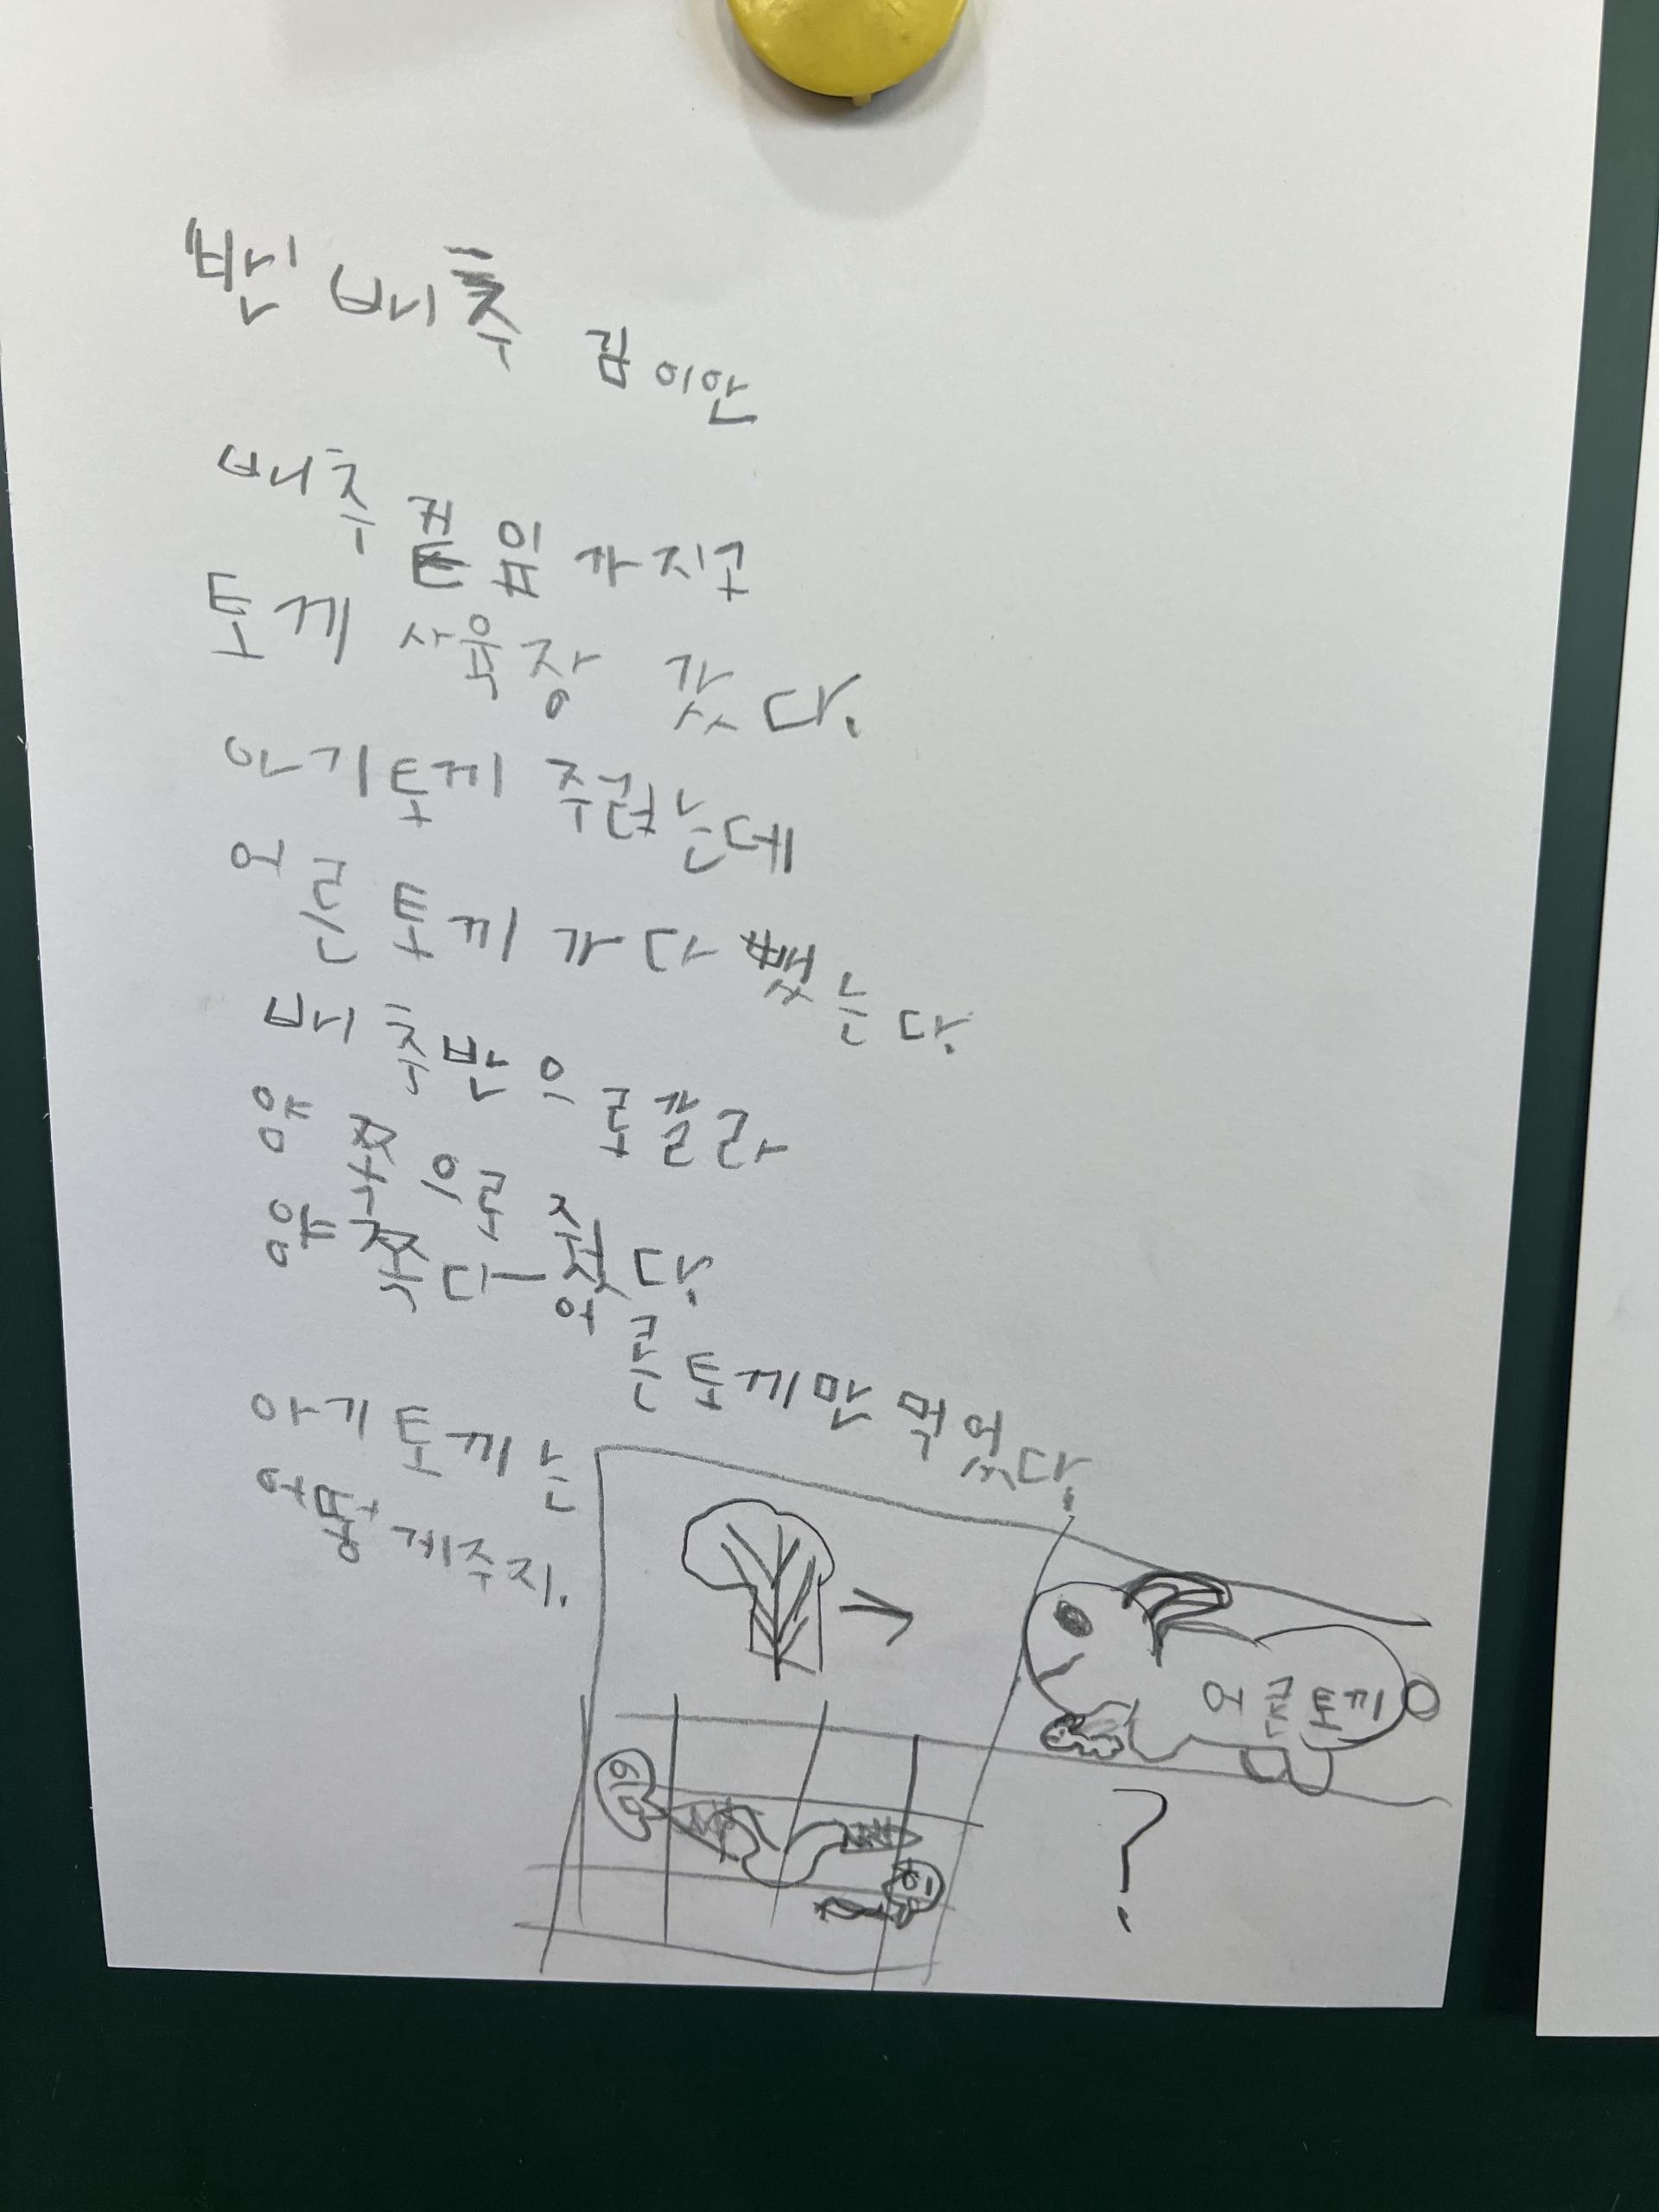 "반" 배추 김이안
배추 겉잎 가지고
토게 사육장 갔다.
아기토끼 주렀는데
어른 토끼가 다 뺏는다.
배추반으로갈라
양쪽으로 줬다.
양쪽다-어른토께만 먹었다.
아기토끼는
어떻게주지.
어른토끼
?